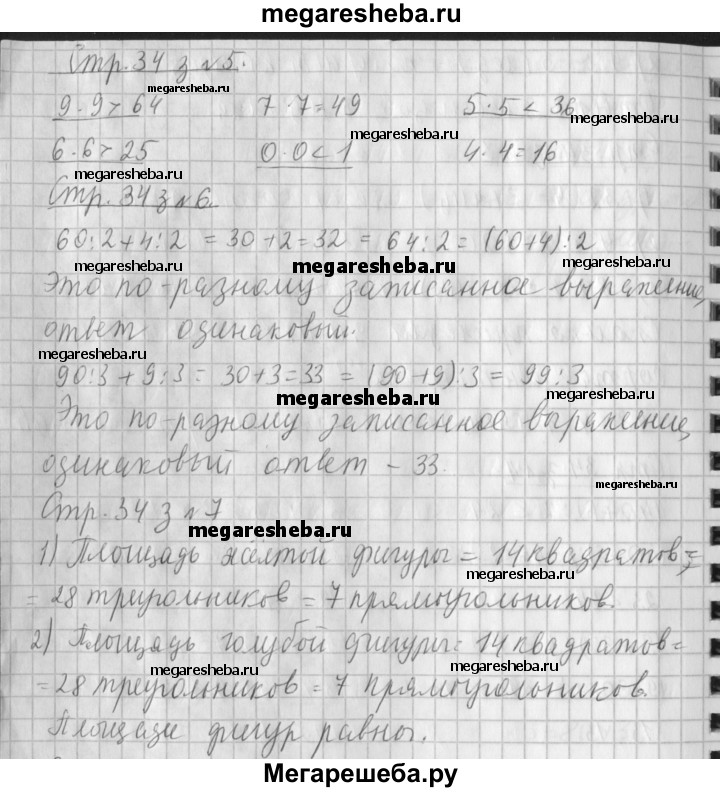 megaresheba.ru
Стр. 34 з №5.
megaresheba.ru
9·9>64 7·7=49 5·5<36
megaresheba.ru megaresheba.ru
6·6>25 0·0<1 4·4=16
megaresheba.ru
Стр. 34 з №6.
60:2+4:2 = 30+2=32 = 64:2= (60+4):2
megaresheba.ru megaresheba.ru megaresheba.ru
Это по-разному записанное выражение,
ответ одинаковый.
megaresheba.ru
90:3+9:3= 30+3=33 = (90+9):3= 99:3
megaresheba.ru megaresheba.ru
Это по-разному записанное выражение,
одинаковый ответ – 33.
megaresheba.ru
Стр. 34 з №7
megaresheba.ru
1) Площадь жёлтой фигуры = 14 квадратов =
megaresheba.ru
= 28 треугольников = 7 прямоугольников.
2) Площадь голубой фигуры = 14 квадратов =
megaresheba.ru megaresheba.ru
= 28 треугольников = 7 прямоугольников.
Площади фигур равны.
Мегарешеба.ру